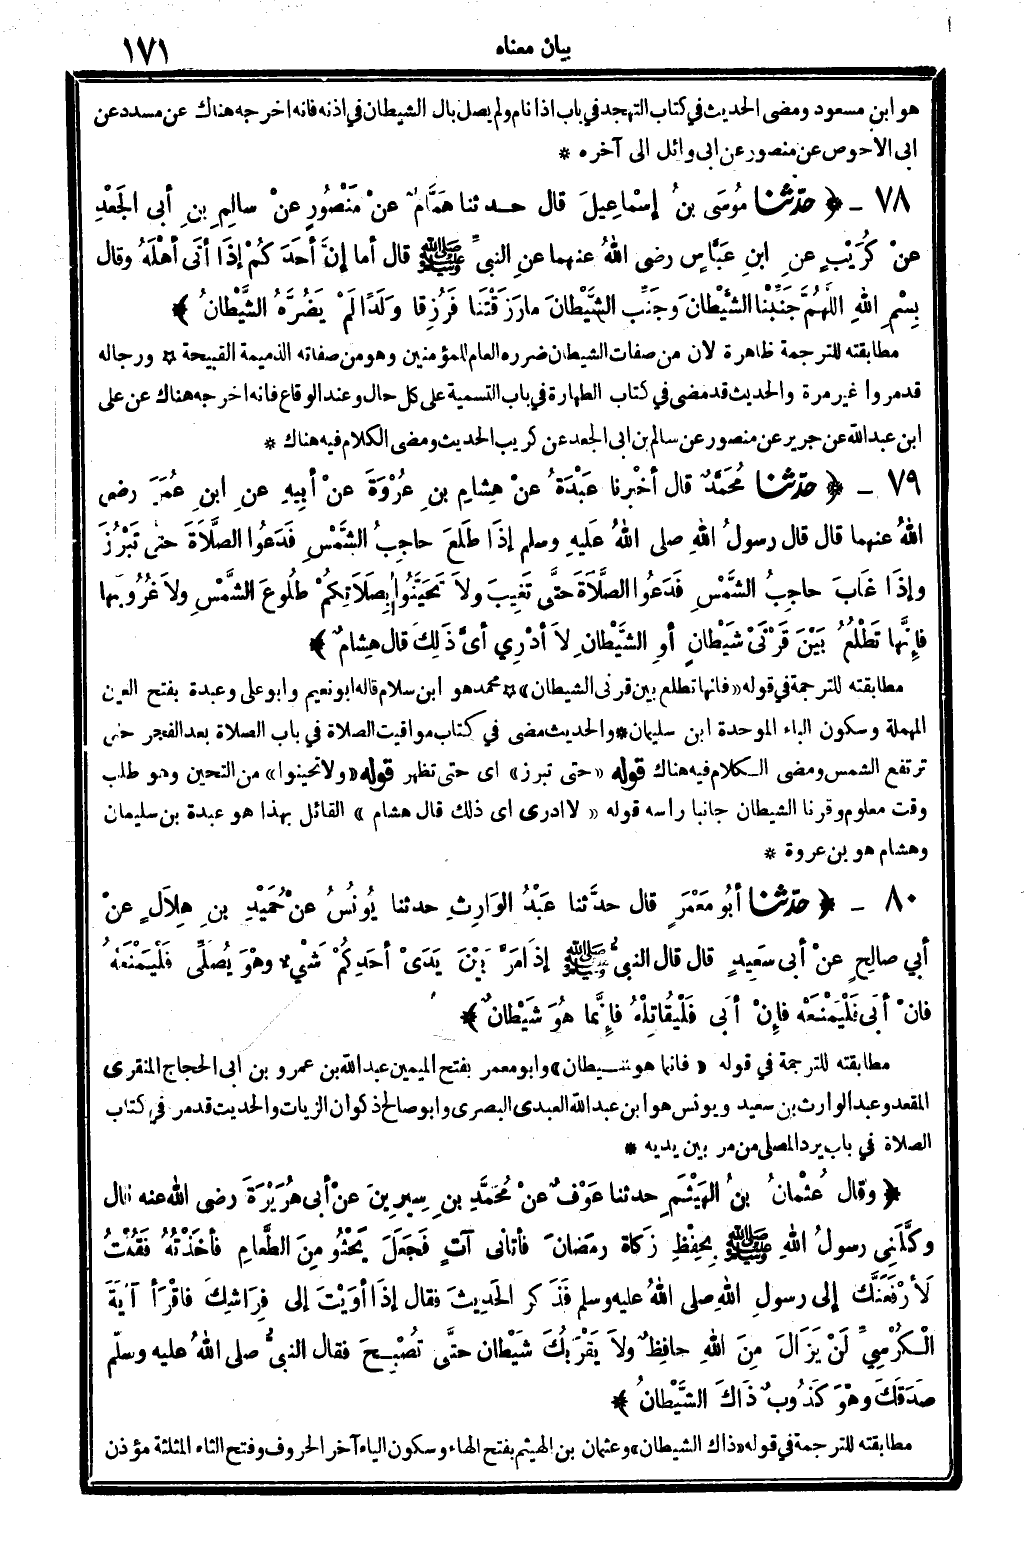 بيان معناه
١٧١
هو ابن مسعود ومضى الحديث في كتاب التهجد في باب اذا نام ولم يصل بال الشيطان في اذنه فانه اخرجه هناك عن مسدد عن
ابى الاحوص عن منصور عن ابى وائل الى آخره *
٧٨ ـ ﴿ حدّثنا مُوسَى بنُ إسْماعِيلَ قال حدثنا هَمَّامٌ عنْ مَنْصُورٍ عنْ سالِمِ بنِ أبى الجَعْدِ
عنْ كُرَيْبٍ عنِ ابنِ عَبَّاسٍ رضى اللهُ عنهما عنِ النبىِّ ﷺ قال أما إنَّ أحَدَكُمْ إذَا أتَى أهْلَهُ وقال
بِسْمِ اللهِ اللَّهُمَّ جَنِّبْنا الشَّيْطَانَ وَجَنِّبِ الشَّيْطَانَ مارَزَقْتَنا فَرُزِقا وَلَدًا لَمْ يَضُرَّهُ الشَّيْطانُ ﴾
مطابقته للترجمة ظاهرة لان من صفات الشيطان ضرره العام للمؤمنين وهو من صفاته الذميمة القبيحة * ورجاله
قد مروا غير مرة والحديث قد مضى في كتاب الطهارة في باب التسمية على كل حال وعند الوقاع فانه اخرجه هناك عن على
ابن عبدالله عن جرير عن منصور عن سالم بن ابى الجعد عن كريب الحديث ومضى الكلام فيه هناك *
٧٩ ـ ﴿ حدّثنا مُحَمَّدٌ قال أخْبرنا عَبْدَةُ عنْ هِشامِ بنِ عُرْوَةَ عنْ أبِيهِ عنِ ابنِ عُمَرَ رضى
اللهُ عنهما قال قال رسولُ اللهِ صلى اللهُ عليهِ وسلم إذَا طَلَعَ حاجِبُ الشَّمْسِ فَدَعُوا الصَّلاَةَ حتى تَبْرُزَ
وإذَا غَابَ حاجِبُ الشَّمْسِ فَدَعُوا الصَّلاَةَ حَتَّى تَغِيبَ ولاَ تَحَيَّنُوا بِصَلاَتِكُمْ طُلُوعَ الشَّمْسِ ولاَ غُرُوبَها
فإنَّها تَطْلُعُ بَيْنَ قَرْنَىْ شَيْطَانٍ أوِ الشَّيْطَانِ لاَ أدْرِي أىَّ ذَلِكَ قال هِشامٌ ﴾
مطابقته للترجمة في قوله «فانها تطلع بين قرنى الشيطان» * محمد هو ابن سلام قاله ابو نعيم وابو على وعبدة بفتح العين
المهملة وسكون الباء الموحدة ابن سليمان * والحديث مضى في كتاب مواقيت الصلاة في باب الصلاة بعد الفجر حتى
ترتفع الشمس ومضى الكلام فيه هناك قوله «حتى تبرز» اى حتى تظهر قوله «ولا تحينوا» من التحين وهو طلب
وقت معلوم وقرنا الشيطان جانبا راسه قوله «لا ادرى اى ذلك قال هشام» القائل بهذا هو عبدة بن سليمان
وهشام هو بن عروة *
٨٠ ـ ﴿ حدّثنا أبُو مَعْمَرٍ قال حدَّثنا عَبْدُ الوَارِثِ حدثنا يُونُسُ عنْ حُمَيْدِ بنِ هِلاَلٍ عنْ
أبي صالِحٍ عنْ أبى سَعِيدٍ قال قال النبىُّ ﷺ إذَا مَرَّ بَيْنَ يَدَىْ أحَدِكُمْ شَيْءٌ وهْوَ يُصَلِّى فَلْيَمْنَعْهُ
فانْ أبَى فَلْيَمْنَعْهُ فإنْ أبَى فَلْيُقاتِلْهُ فإنَّما هُوَ شَيْطانٌ ﴾
مطابقته للترجمة في قوله «فانما هو شيطان» وابو معمر بفتح الميمين عبدالله بن عمرو بن ابى الحجاج المنقرى
المقعد وعبد الوارث بن سعيد ويونس هو ابن عبدالله العبدى البصرى وابو صالح ذكوان الزيات والحديث قدمر في كتاب
الصلاة في باب يرد المصلى من مر بين يديه *
﴿ وقال عُثْمانُ بنُ الهَيْثَمِ حدثنا عَوْفٌ عنْ مُحَمَّدِ بنِ سِيرِينَ عنْ أبى هُرَيْرَةَ رضى الله عنه قال
وكَّلَنِي رسولُ اللهِ ﷺ بِحِفْظِ زكاةِ رمضانَ فأتانى آتٍ فَجَعَلَ يَحْثُو مِنَ الطَّعامِ فأخَذْتُهُ فقُلْتُ
لَأَرْفَعَنَّكَ إلى رسولِ اللهِ صلى اللهُ عليه وسلم فَذَكر الحَدِيثَ فقال إذَا أوَيْتَ إلى فِرَاشِكَ فاقْرَأ آيَةَ
الْكُرْسِيِّ لَنْ يَزَالَ مِنَ اللهِ حافِظٌ ولاَ يَقْرَبُكَ شَيْطان حتَّى تُصْبِحَ فقال النبىُّ صلى اللهُ عليه وسلّم
صَدَقَكَ وهْوَ كَذُوبٌ ذَاكَ الشَّيْطانُ ﴾
مطابقته للترجمة في قوله «ذاك الشيطان» وعثمان بن الهيثم بفتح الهاء وسكون الياء آخر الحروف وفتح الثاء المثلثة مؤذن